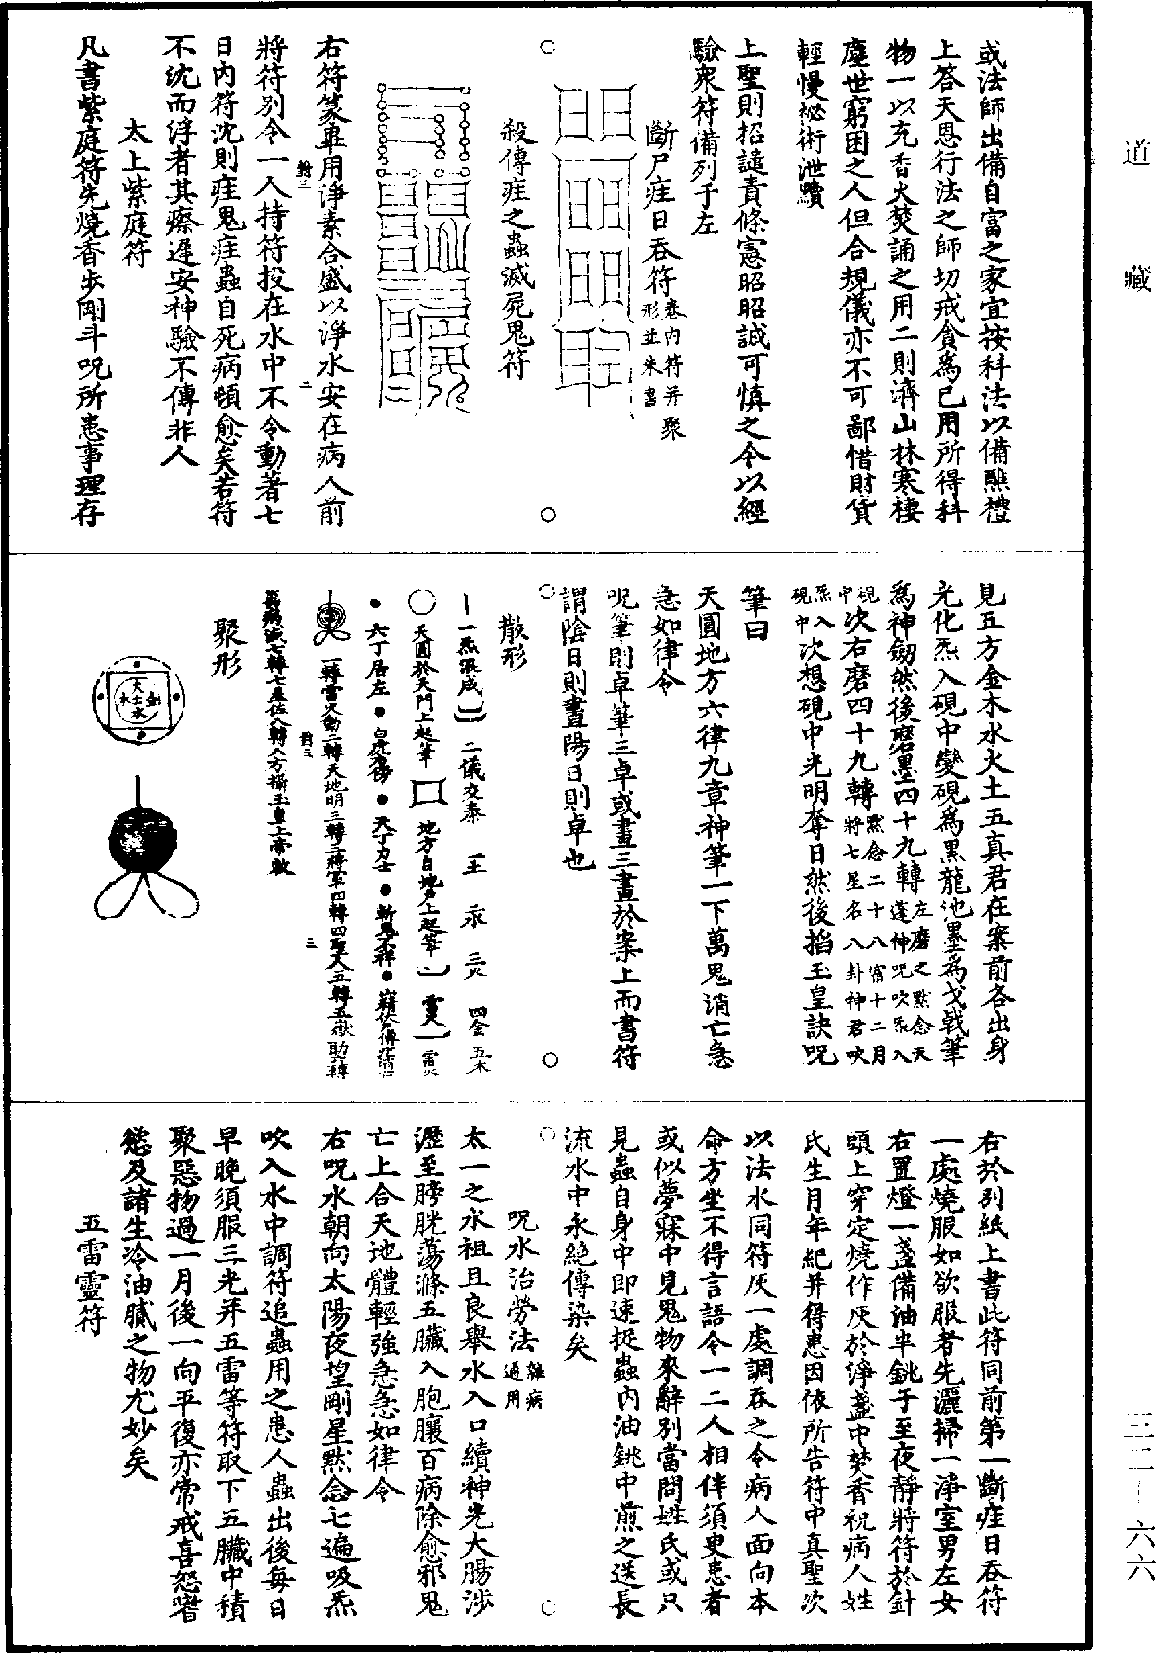 道藏
三二—六六
或法師出備自富之家宜按科法以備醮禮
上答天恩行法之師切戒貪為己用所得科
物一以充香火焚誦之用二則濟山林寒棲
塵世窮困之人但合規儀亦不可鄙惜財貨
輕慢祕術泄瀆
上聖則招譴責條憲昭昭誠可慎之今以經
驗衆符備列于左
斷尸疰日吞符 卷内符并聚形並朱書
殺傳疰之蟲滅屍鬼符
右符篆車用淨素合盛以淨水安在病人前
將符別令一人持符投在水中不令動著七
日内符沈則疰鬼疰蟲自死病頓愈矣若符
不沈而浮者其瘵遲安神驗不傳非人
太上紫庭符
凡書紫庭符先燒香步剛斗呪所患事理存
見五方金木水火土五真君在案前各出身
光化炁入硯中變硯為黑龍池墨為戈戟筆
為神劒然後磨墨四十九轉 左磨之默念天蓬神呪吹炁入硯中
次右磨四十九轉 默念二十八宿十二月將七星名八卦神君吹炁入硯中
次想硯中光明奪日然後掐玉皇訣呪
筆曰
天圓地方六律九章神筆一下萬鬼消亡急
急如律令
呪筆則卓筆三卓或畫三畫於案上而書符
謂陰日則畫陽日則卓也
散形
一炁張成 二儀交泰 一王 二水 三火 四金 五木
天圓於天門上起筆 地方自地戶上起筆 雷火
六丁居左 白虎居傍 天丁力士 斬鬼不祥
一轉雷火動二轉天地明三轉三將軍四轉四聖人五轉五嶽助
七轉七星佐八轉八方攝玉皇上帝敕
聚形
右於別紙上書此符同前第一斷疰日吞符
一處燒服如欲服者先灑掃一淨室男左女
右置燈一盞備油半銚子至夜靜將符於針
頭上穿定燒作灰於淨盞中焚香祝病人姓
氏生月年紀并得患因依所告符中真聖次
以法水同符灰一處調吞之令病人面向本
命方坐不得言語令一二人相伴須臾患者
或似夢寐中見鬼物來辭別當問姓氏或只
見蟲自身中即速捉蟲内油銚中煎之送長
流水中永絶傳染矣
呪水治勞法 雜病通用
太一之水祖且良舉水入口續神光大腸涉
瀝至膀胱蕩滌五臟入胞臟百病除愈邪鬼
亡上合天地體輕強急急如律令
右呪水朝向太陽夜望剛星默念七遍吸炁
吹入水中調符追蟲用之患人蟲出後每日
早晚須服三光并五雷等符取下五臟中積
聚惡物過一月後一向平復亦常戒喜怒嗜
慾及諸生冷油膩之物尤妙矣
五雷靈符